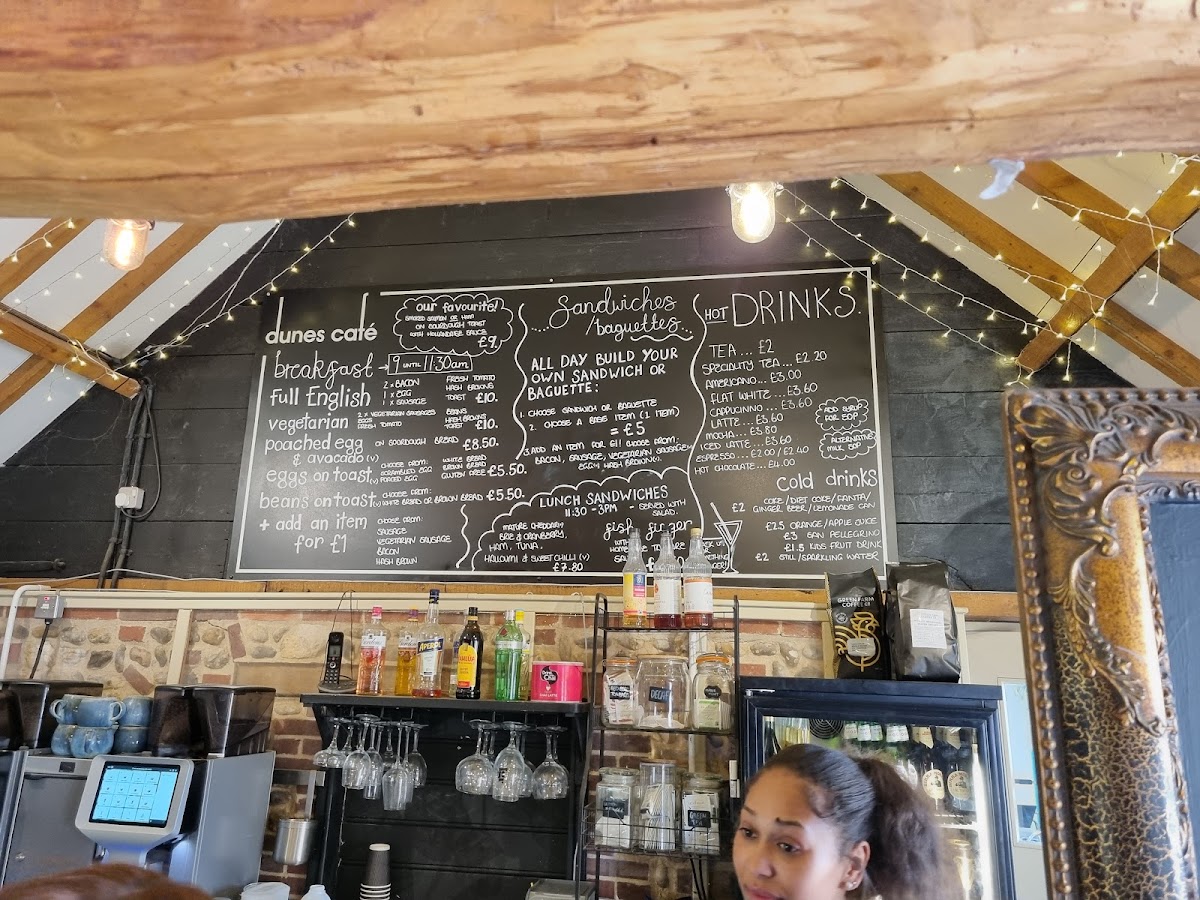 dunes café
our favourite!
SMOKED SALMON OR HAM
ON SOURDOUGH TOAST
WITH HOLLANDAISE SAUCE
£9
breakfast → 9 UNTIL 11:30am
full English
2 x BACON
1 x EGG
1 x SAUSAGE
FRESH TOMATO
HASH BROWNS
TOAST £10.
vegetarian
2 x VEGETARIAN SAUSAGES
EGGS
FRESH TOMATO
BEANS
HASH BROWNS
TOAST £10.
poached egg
& avocado (v)
ON SOURDOUGH BREAD £8.50
eggs on toast (v)
CHOOSE FROM:
SCRAMBLED EGG
POACED EGG
WHITE BREAD
BROWN BREAD
GLUTEN FREE £5.50
beans on toast (v)
CHOOSE FROM:
WHITE BREAD OR BROWN BREAD £5.50
+ add an item
for £1
CHOOSE FROM:
SAUSAGE
VEGETARIAN SAUSAGE
BACON
HASH BROWN
Sandwiches
/baguettes
ALL DAY BUILD YOUR
OWN SANDWICH OR
BAGUETTE:
1. CHOOSE SANDWICH OR BAGUETTE
2. CHOOSE A BASE ITEM (1 ITEM)
= £5
3. ADD AN ITEM FOR £1! CHOOSE FROM:
BACON, SAUSAGE, VEGETARIAN SAUSAGE
EGG, HASH BROWN
LUNCH SANDWICHES
11:30 - 3PM - SERVED WITH
SALAD.
MATURE CHEDDAR,
BRIE & CRANBERRY,
HAM, TUNA,
HALLOUMI & SWEET CHILLI (v)
£7.80
fish finger
WITH
HOT DRINKS.
TEA... £2
SPECIALITY TEA... £2.20
AMERICANO... £3.00
FLAT WHITE... £3.60
CAPPUCINNO... £3.60
LATTE... £3.60
MOCHA... £3.80
ICED LATTE... £3.60
ESPRESSO... £2.00 / £2.40
HOT CHOCOLATE... £4.00
ADD SYRUP
FOR 50P
ALTERNATIVE
MILK 50P
cold drinks
COKE/DIET COKE/FANTA/
£2 GINGER BEER/LEMONADE CAN
£2.5 ORANGE/APPLE JUICE
£3 SAN PELLEGRINO
£1.5 KIDS FRUIT DRINK
£2 STILL/SPARKLING WATER
APEROL
DECAF
GREEN FARM
COFFEE CO